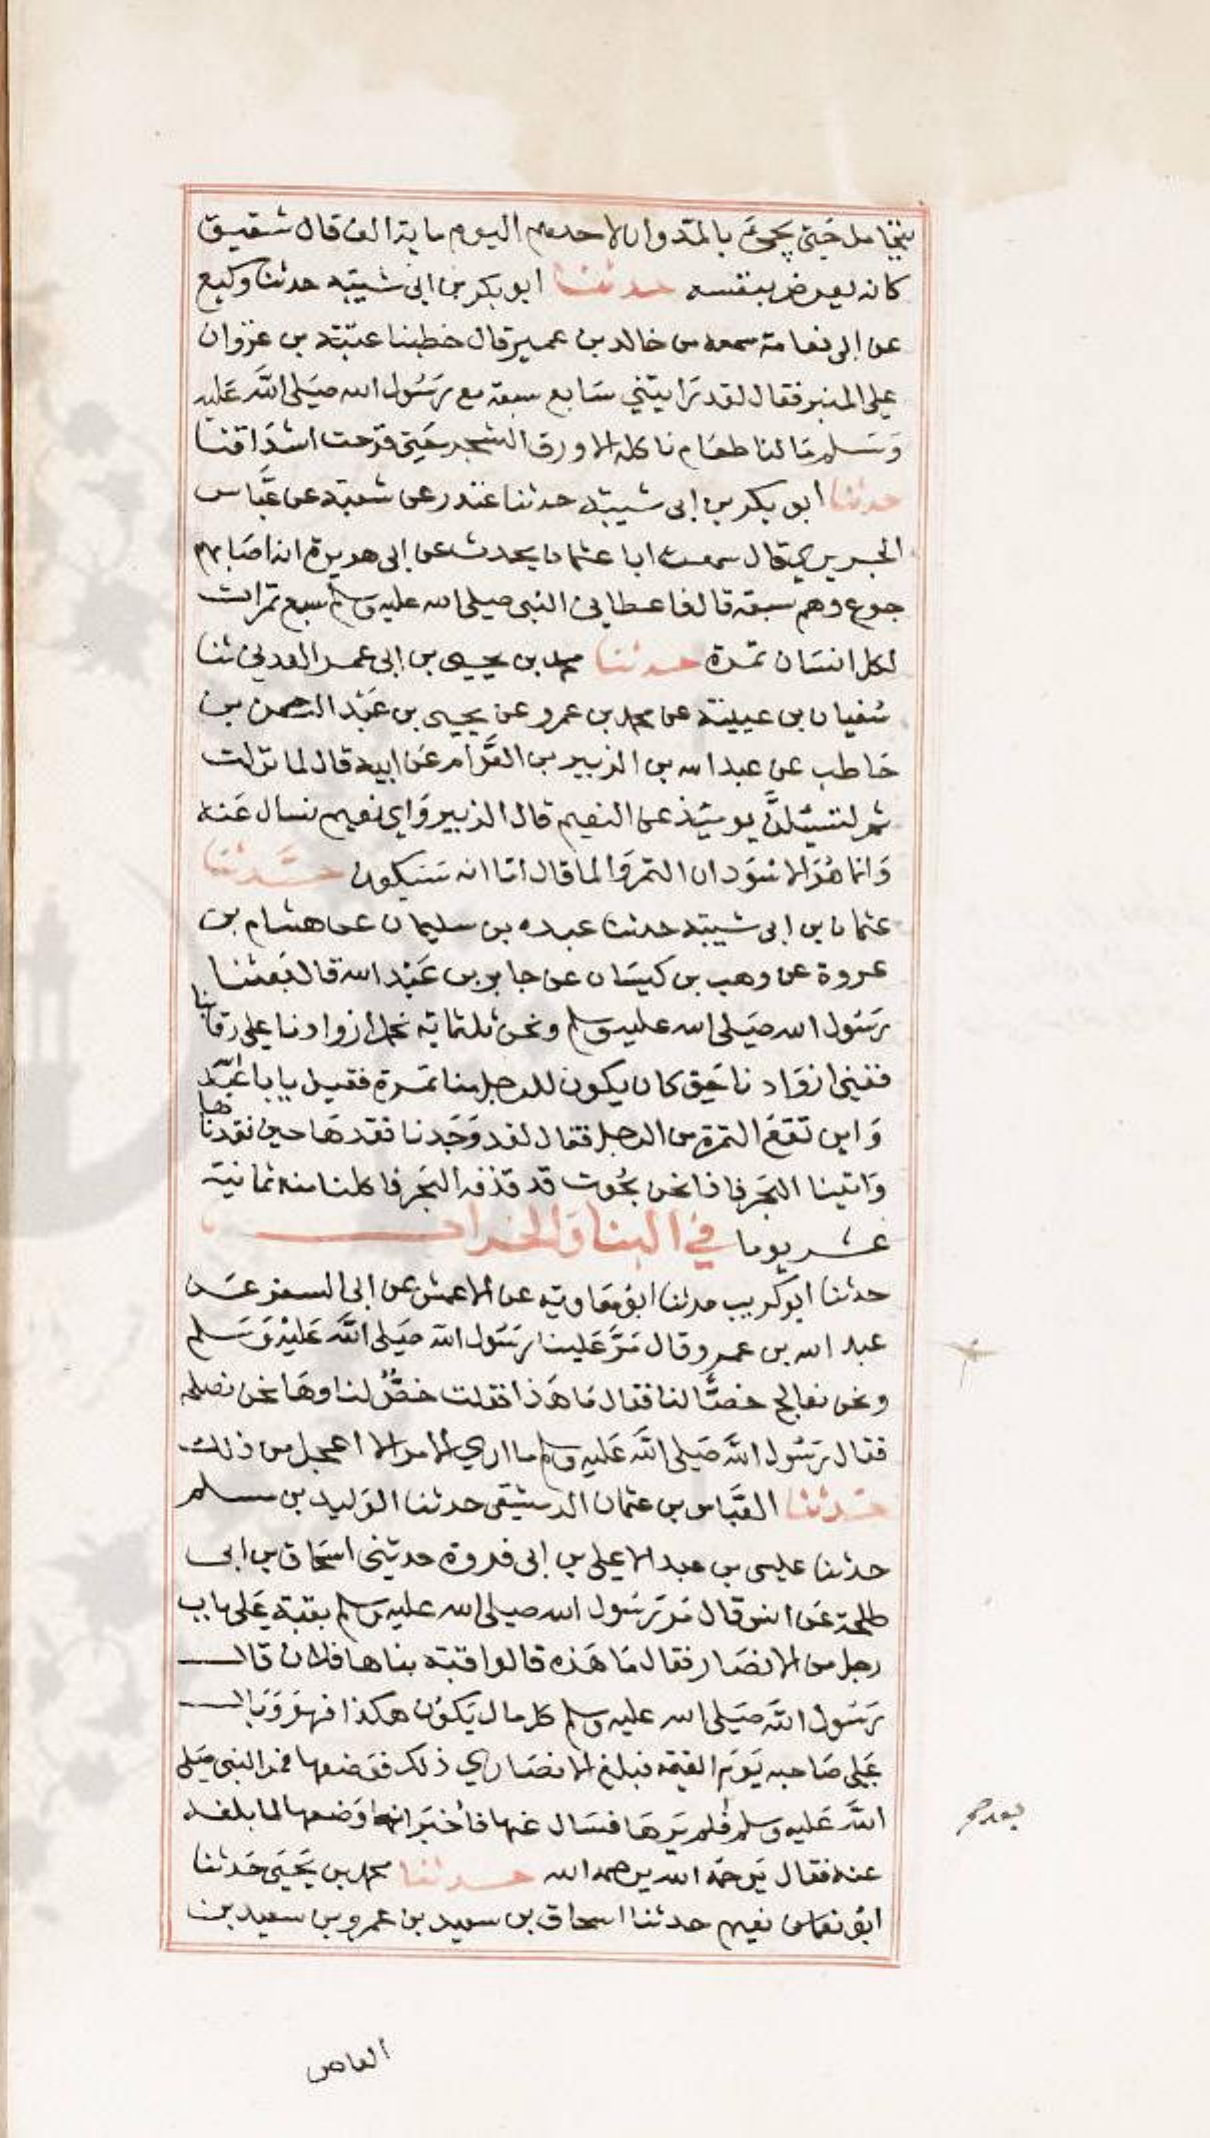 يتحامل حتى يجيء بالمد وان لاحدهم اليوم ماية الف قال شقيق
كانه يعرض بنفسه حدثنا ابو بكر بن ابى شيبة حدثنا وكيع
عن ابى نعامة سمعه من خالد بن عمير قال خطبنا عتبة بن غزوان
على المنبر فقال لقد رَايتني سَابع سبعة مع رَسُول الله صَلى اللّه عَليه
وَسَلم مَا لنا طعَام ناكله الا ورق الشجر حَتى قرحت اشدَاقنا
حدثنا ابو بكر بن ابى شيبة حدثنا غندر عن شعبة عن عَبَّاس
الجريري قال سمعت ابا عثمان يحدث عن ابى هريرة انه اصَابهم
جوع وهم سبعة قال فاعطانى النبى صلى الله عليه وسلم سبع تمرات
لكل انسَان تمرة حدثنا محمد بن يحيى بن ابى عمر العدنى ثنا
سُفيان بن عيينة عن محمد بن عمرو عن يحيى بن عَبْد الرحمن بن
حَاطب عن عبد الله بن الزبير بن العَوَّام عَن ابيه قال لما نزلت
ثم لتسئلنَّ يومئِذ عن النعيم قال الزبير وَاي نعيم نسال عَنه
وَانما هُوَ الاسْوَدان التمر وَالما قال امّا انه سَيَكون حَدَّثنا
عثمان بن ابى شيبة حدثنا عبده بن سليمان عن هشام بن
عروة عن وهب بن كيسَان عن جابر بن عَبْد الله قال بَعثنا
رَسُول الله صَلى الله عليه وسلم ونحن ثلثماية نحمل ازوادنا على رقابنا
ففنى ازوَادنا حَتى كان يكون للرجل منا تمرة فقيل يا با عَبْد الله
وَاين تقعُ التمرة من الرجل فقال لقد وَجَدنا فقدهَا حين فقدناها
وَاتينا البَحر فاذا نحن بحُوت قد قذفه البَحر فاكلنا منه ثمانية
عَشر يوما في البنا وَالخراب
حدثنا ابو كُريب حدثنا ابو مُعَاوية عن الاعمش عن ابى السفر عَن
عبد الله بن عمرو قال مَرَّ عَلينا رَسُول اللّه صَلى اللَّه عَليْه وَسَلم
ونحن نعالج خصًّا لنا فقال مَا هَذا فقلت خصٌّ لنا وهَا نحن نصلحه
فقال رَسُول اللّه صَلى اللَّه عَليه وسلم ما ارى الامر الا اعجل من ذلك
حَدثنا العَبَّاس بن عثمان الدمشقى حدثنا الوَليد بن مسلم
حدثنا عيسى بن عبد الاعلى بن ابى فروة حدثنى اسحَاق بن ابى
طلحة عَن انس قال مَر رَسُول الله صلى الله عليه وسلم بقبة عَلى باب
رجل من الانصَار فقال مَا هَذه قالوا قبّة بناها فلان قال
رَسُول اللّه صَلى الله عليه وسلم كل مال يَكوُن هكذا فهوَ وَبال
عَلى صَاحبه يَوَم القيمة فبلغ الانصَاري ذلك فوَضعها فمر النبى صَلى
اللَّه عَليه وسلم فلم يَرهَا فسَال عَنها فأخبَر انه وَضعها لما بلغه
عنه فقال يَرحَمه الله يرحمه الله حدثنا محمد بن يَحْيَى حَدثنا
ابو نعيم حدثنا اسحاق بن سعيد بن عمرو بن سعيد بن
العاص